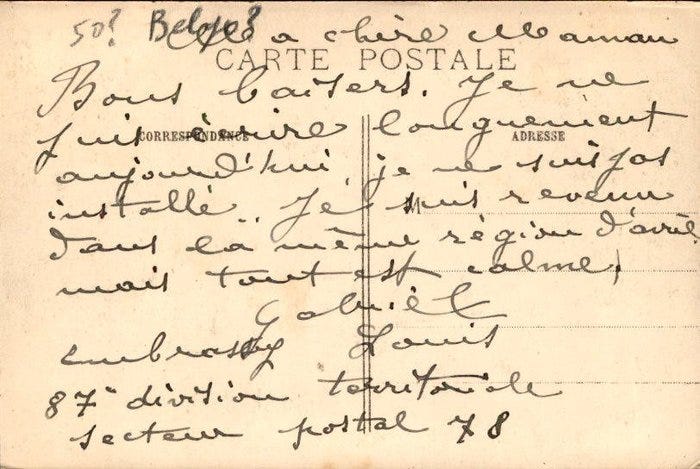 50? Belge?
Ma chère Maman
CARTE POSTALE
Bons baisers. Je ne
puis écrire longuement
CORRESPONDANCE
ADRESSE
aujourd'hui, je ne suis pas
installé. Je suis revenu
M
dans la même région d'avril
mais tout est calme,
Gabriel
embrassez Louis
87e division territoriale
secteur postal 78